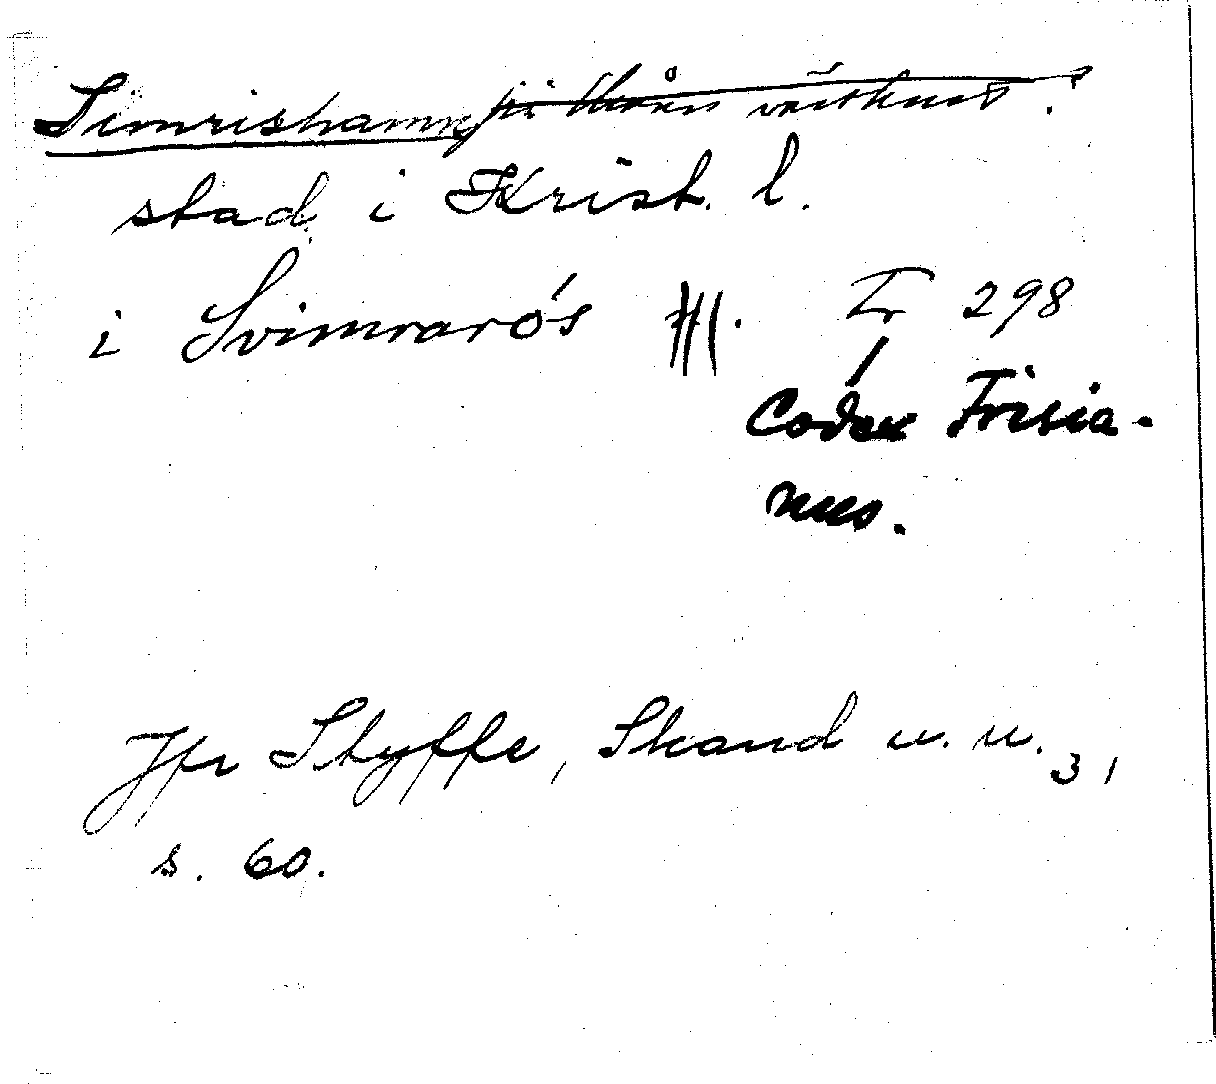 Simrishamn på Skånes västkust.
stad i Krist. l.
i Svimraró's Hl. Fr 298
Codex Frisia-
nus.
Jfr Styffe, Skand u. u. 3,
s. 60.